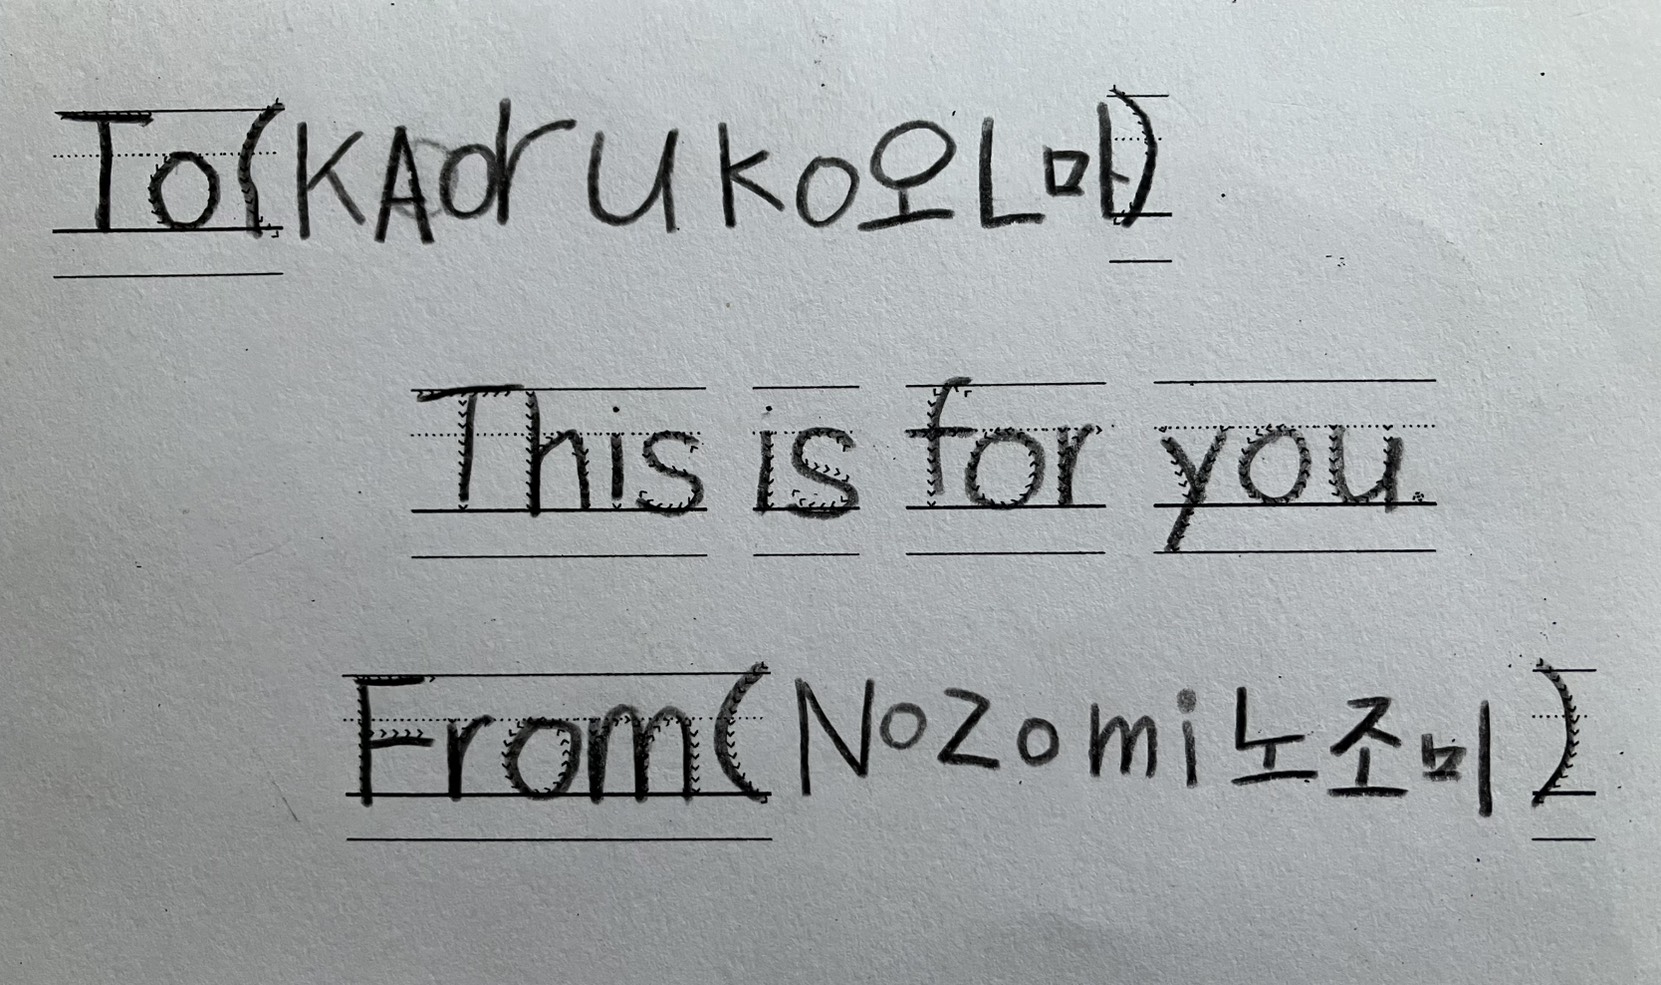 To(KAoruko오L마)
This is for you.
From(Nozomi노조미)